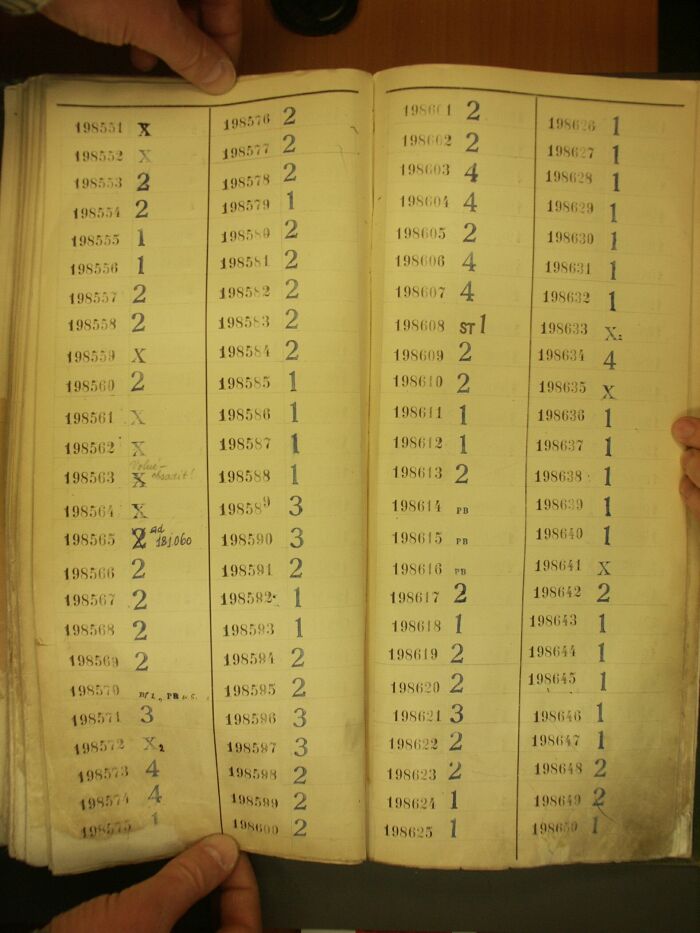 198551 X
198552 X
198553 2
198554 2
198555 1
198556 1
198557 2
198558 2
198559 X
198560 2
198561 X
198562 X
198563 X obsadit!
198564 X
198565 2 ad 181.060
198566 2
198567 2
198568 2
198569 2
198570 PB
198571 3
198572 X2
198573 4
198574 4
198575 1
198576 2
198577 2
198578 2
198579 1
198580 2
198581 2
198582 2
198583 2
198584 2
198585 1
198586 1
198587 1
198588 1
198589 3
198590 3
198591 2
198592 1
198593 1
198594 2
198595 2
198596 3
198597 3
198598 2
198599 2
198600 2
198601 2
198602 2
198603 4
198604 4
198605 2
198606 4
198607 4
198608 ST 1
198609 2
198610 2
198611 1
198612 1
198613 2
198614 PB
198615 PB
198616 PB
198617 2
198618 1
198619 2
198620 2
198621 3
198622 2
198623 2
198624 1
198625 1
198626 1
198627 1
198628 1
198629 1
198630 1
198631 1
198632 1
198633 X2
198634 4
198635 X
198636 1
198637 1
198638 1
198639 1
198640 1
198641 X
198642 2
198643 1
198644 1
198645 1
198646 1
198647 1
198648 2
198649 2
198650 1